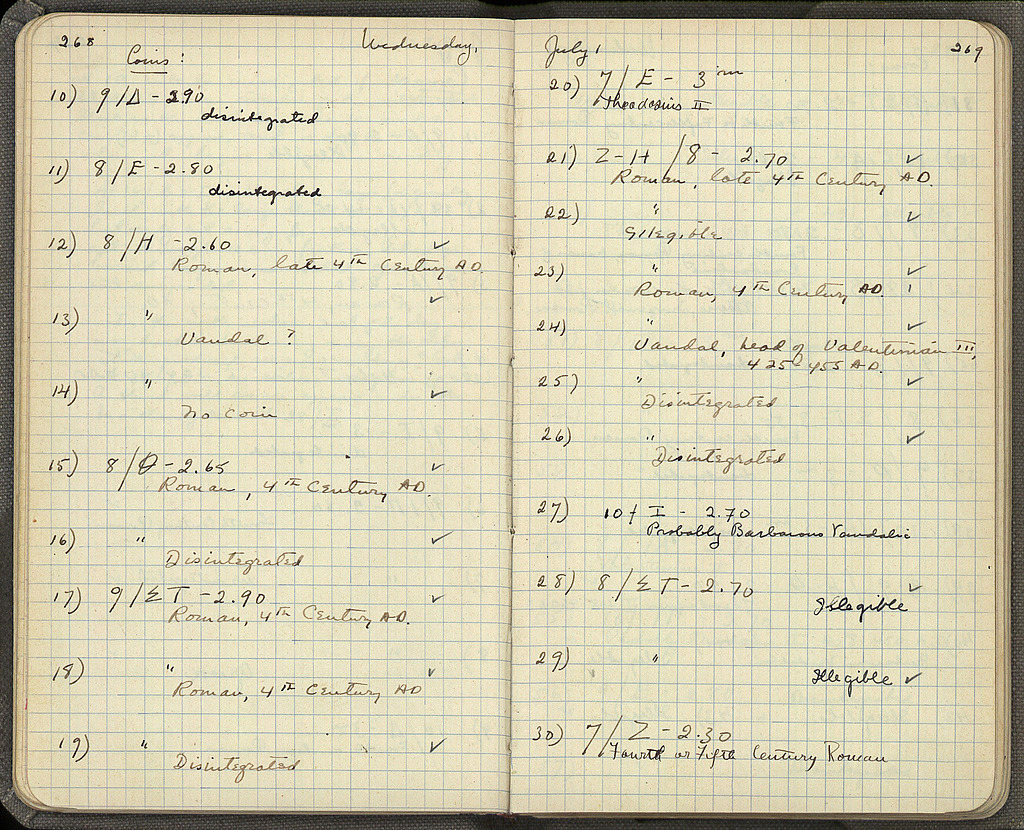 268
Wednesday,
Coins:
10) 9/Δ - 2.90
disintegrated
11) 8/E - 2.80
disintegrated
12) 8/H - 2.60 ✓
Roman, late 4TH Century AD.
✓
13) "
Vandal ?
14) " ✓
No coin
15) 8/Θ - 2.65 ✓
Roman, 4TH Century AD.
16) " ✓
Disintegrated
17) 9/ΣT - 2.90 ✓
Roman, 4TH Century AD.
18) " ✓
Roman, 4TH Century AD
19) " ✓
Disintegrated
July 1
269
20) 7/E - 3m
Theodosius II
21) Z-H/8 - 2.70 ✓
Roman, late 4TH Century AD.
22) " ✓
Illegible
23) " ✓
Roman, 4TH Century AD.
24) " ✓
Vandal, head of Valentinian III,
425-455 AD.
25) " ✓
Disintegrated
26) " ✓
Disintegrated
27) 10/I - 2.70
Probably Barbarous Vandalic
28) 8/ΣT - 2.70 ✓
Illegible
29) "
Illegible ✓
30) 7/Z - 2.30
Fourth or Fifth Century Roman